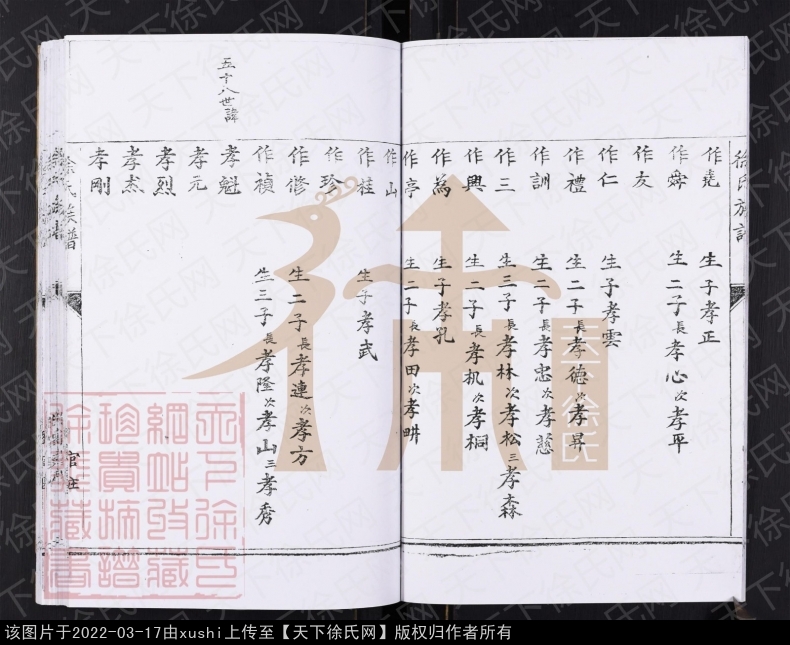 徐氏族譜
作堯 生子孝正
作舜 生二子長孝心次孝平
作友
作仁 生子孝雲
作禮 生二子長孝德次孝昇
作訓 生二子長孝忠次孝慈
作三 生三子長孝林次孝松三孝森
作興 生二子長孝机次孝桐
作為 生子孝孔
作亭 生二子長孝田次孝畊
作山
作桂 生子孝武
作珍
作修 生二子長孝連次孝方
作禎 生三子長孝隆次孝山三孝秀
五十八世諱
孝魁
孝元
孝烈
孝杰
孝剛
徐氏族譜
官庄
天下徐氏
天下徐氏网
该图片于2022-03-17由xushi上传至【天下徐氏网】版权归作者所有